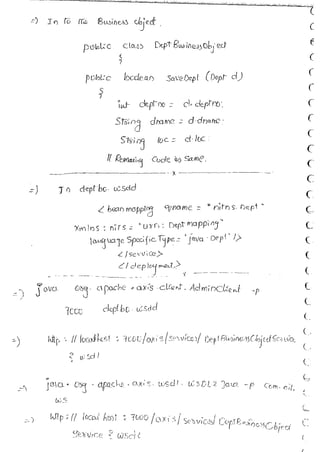 =) In to the Business object.
public class DeptBusinessObject
{
public boolean saveDept (Dept d)
{
int deptno = d.deptno;
String dname = d.dname.
String loc = d.loc.
// Remaining code is same.
x
=) In deptbo.wsdd
< beanmapping qname = "nitns:Dept"
xmlns : nits = "urn: Deptmapping"
language Specific Type = "java: Dept" />
</service>
</deployment>
=) java org. apache. axis. client. AdminClient -p
7000 deptbo.wsdd
=) http://localhost : 7000/axis/services/DeptBusinessObjectService
? wsdl
=) java. org. apache. axis. wsdl. WSDL2 Java -p com.nit.
ws
=) http:// local host : 7000/axis/services/DeptBusinessObject
Service ? wsdl